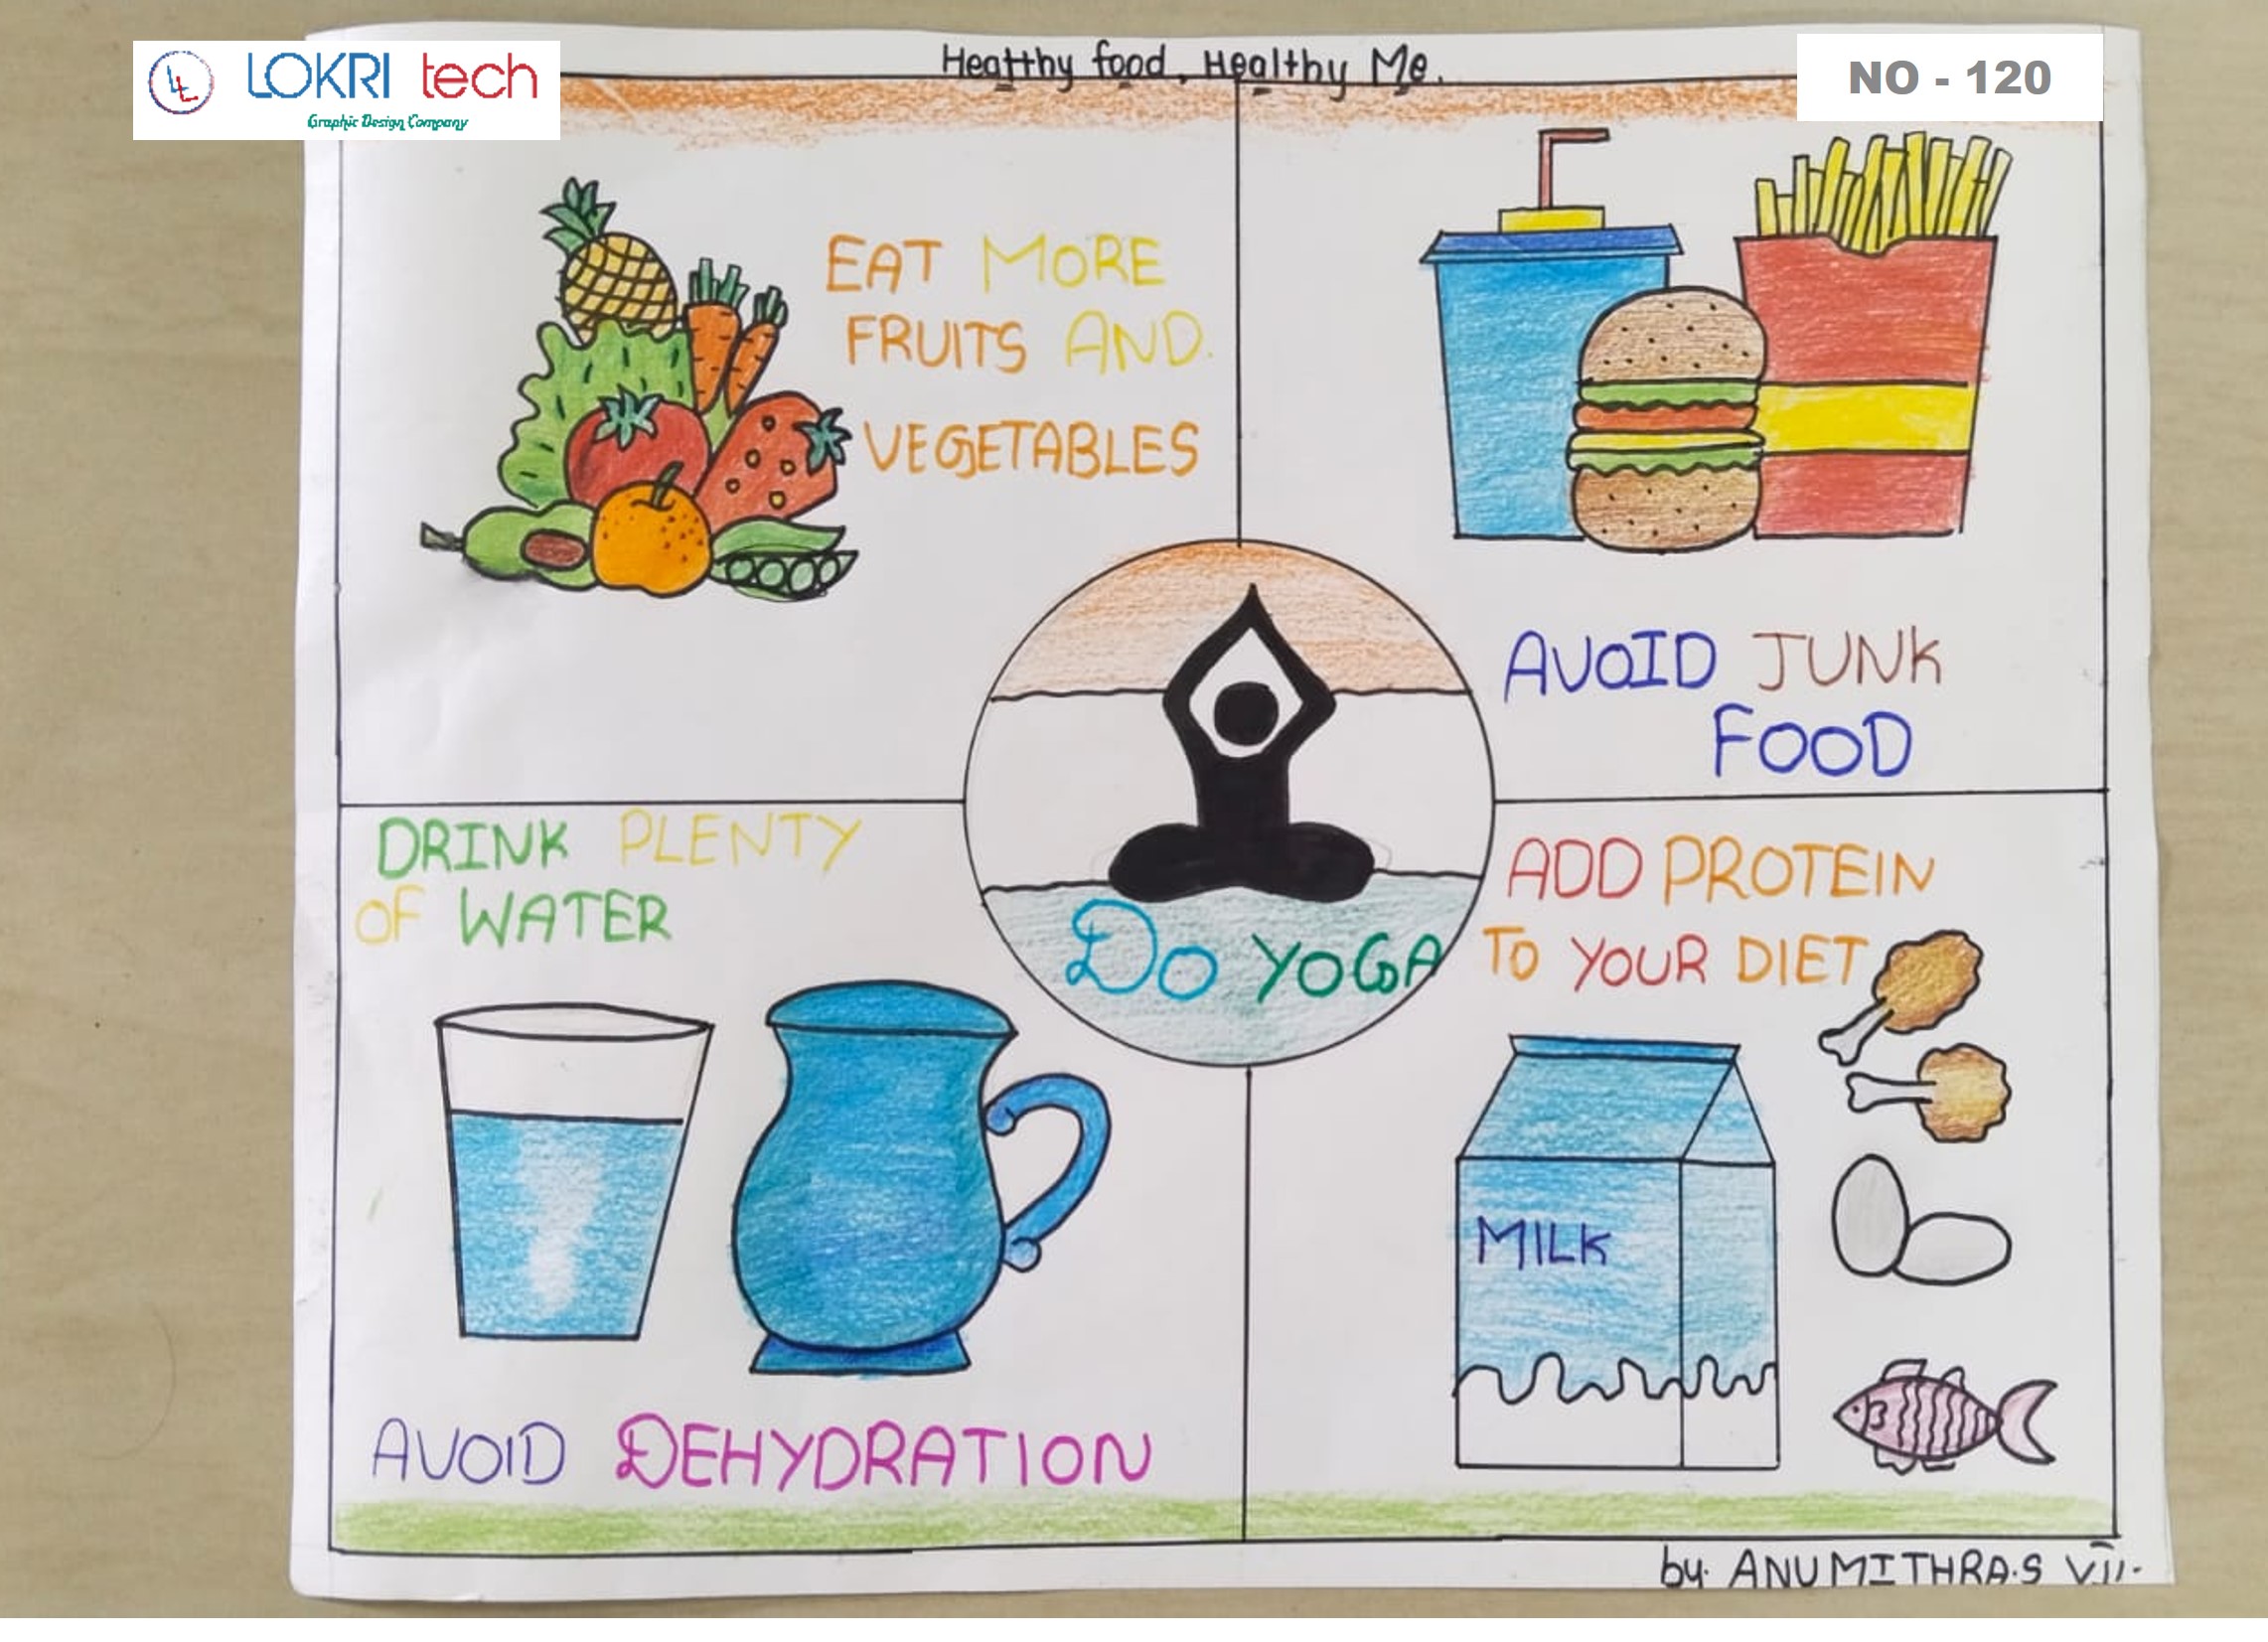 LOKRI tech
Graphic Design Company
NO - 120
Healthy food, Healthy Me.
EAT MORE
FRUITS AND.
VEGETABLES
AVOID JUNK
FOOD
DO YOGA
DRINK PLENTY
OF WATER
AVOID DEHYDRATION
ADD PROTEIN
TO YOUR DIET
MILK
by. ANUMITHRA.S VII.